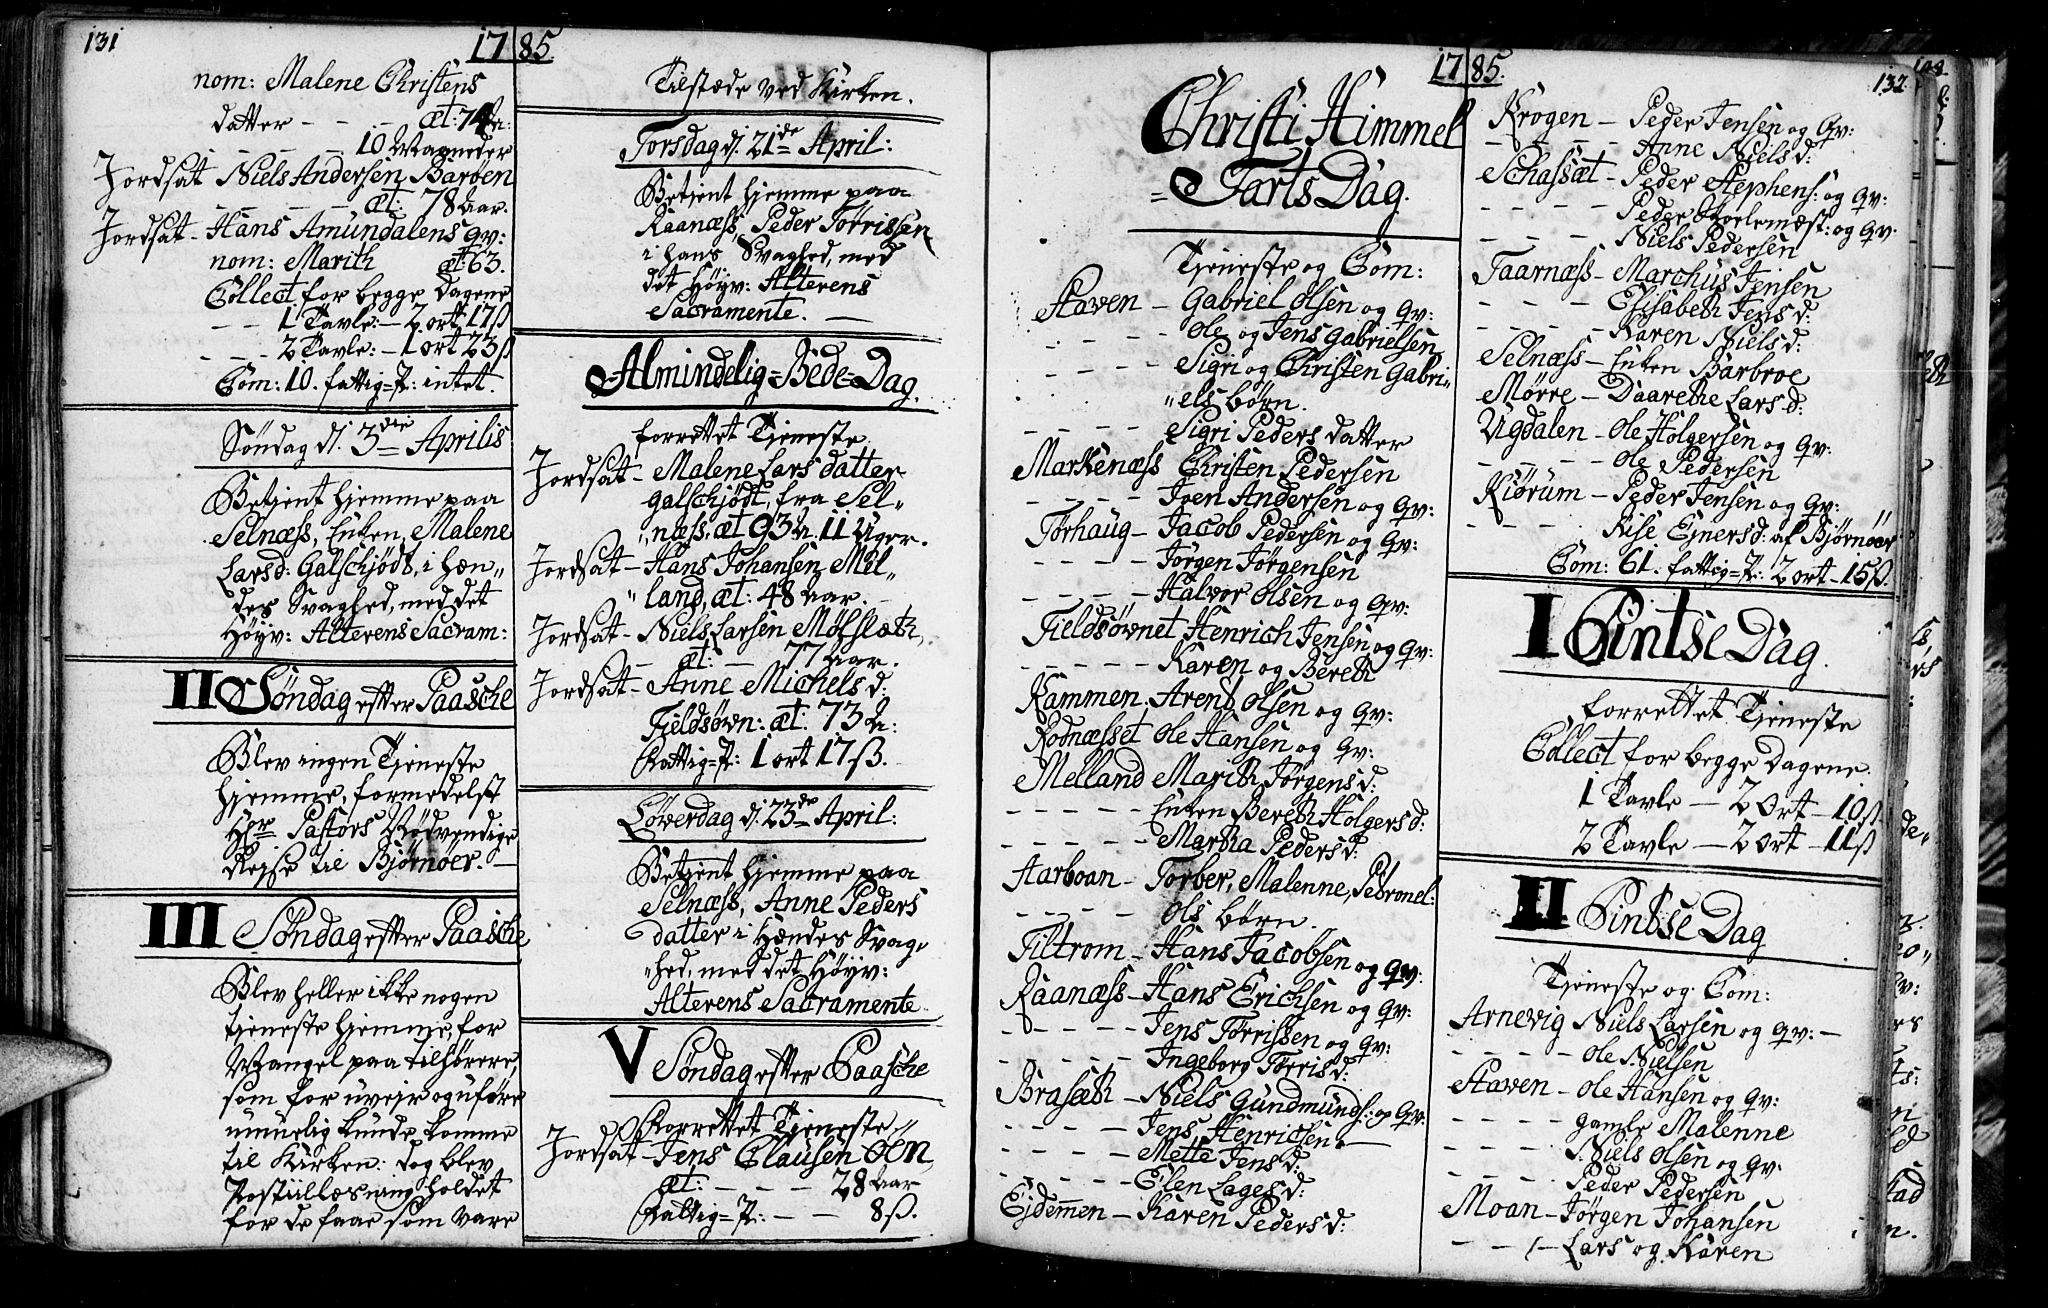 131
1785.
nom: Malene Christens
datter - - - æt: 74 Ar:
- - - - 10 Maaneder
Jordsat Niels Andersen Barben
- - - - æt: 78 Aar.
Jordsat - Hans Amundalens qv:
nom: Marith æt: 63.
Collect for begge Dagene
- - 1 Tavle: - 2 ort 17 ß
- - - 2 Tavle: - 1 ort 23 ß
Com: 10. fattig=P: intet.
Søndag d. 3die Aprilis
Betient hjemme paa
Selnæss, Enken, Malene
Larsd: Galschjødt, i Hæn„
des Svaghed, med det
Höyv: Alterens Sacram:
II Søndag efter Paasche
Blev ingen Tjeneste
hjemme, formedelst
Hr Pastors Nödvendige
Rejse til Bjørnöer. -
III Søndag efter Paasche
Blev heller ikke nogen
tjeneste hjemme, for
Mangel paa tilhörere,
som for uveir og uföre
umuelig kunde komme
til Kirken: dog blev
Postillæsning holdet
for de faae som vare
Tilstæde ved Kirken.
Torsdag d. 21de April:
Betient hjemme paa
Raanæss, Peder Törrissen
i hans Svaghed, med
det Höyv: Alterens
Sacramente. -
Almindelig=Bede=Dag.
forrettet Tjeneste
Jordsat - Malene Lars datter
Galschjödt, fra Sel„
„næss, æt 93 Ar. 11 Uger.
Jordsat - Hans Johansen Mel„
„land, æt: 48 Aar.
Jordsat - Niels Larsen Mölslæth,
- æt: - 77 Aar.
Jordsat - Anne Michels d:
Fieldsövn: æt: 73 Ar:
Fattig=P: 1 ort 17 ß.
Löverdag d. 23de April:
Betient hjemme paa
Selnæss, Anne Peders
datter i Hændes Svag„
„hed, med det Höyv:
Alterens Sacramente.
V Søndag efter Paasche
Forrettet Tjeneste
Jordsat - Jens Clausen Öen,
æt: - - - 28 Aar
Fattig=P: - - 8 ß.
1785.
132.
Christi Himmel
= Farts Dag.
Tjeneste og Com:
Staven - Gabriel Olsen og qv:
- - - - Ole og Jens Gabrielsen
- - - - Sigri og Christen Gabri„
„els börn.
- - - - Sigri Peders datter
Markenæss Christen Pedersen
- - - - Iven Andersen og qv:
Torhaug - Jacob Pedersen og qv:
- - - - Jörgen Jörgensen
- - - - Halvor Olsen og qv:
Fieldsövnet Henrich Jensen og qv:
- - - - - Karen og Bereth
Kammen. Arent Olsen og qv:
Rodnæsset Ole Hansen og qv:
Melland Marith Jörgens d:
- - - - - Enken Bereth Holgers d:
- - - - - Martha Peders d:
Aarboan - Torber, Malenne, Petronel:
- - - - Ols börn.
Tiltrom - Hans Jacobsen og qv:
Raanæss - Hans Erichsen og qv:
- - - - - Jens Törrissen og qv:
- - - - - Ingeborg Törris d:
Brasæth - Niels Gundmunds: og qv:
- - - - Jens Henrichsen -
- - - - - Mette Jens d:
- - - - - Elen Lages d:
Ejdemmen - Karen Peders d:
Krogen - Peder Jensen og qv:
- - - - Anne Niels d:
Schassæt - Peder Stephens: og qv:
- - - - Peder Skolemæst: og qv.
- - - - Niels Pedersen
Taarnæss - Marchus Jensen
- - - - Elisabeth Jens d:
- - - - Karen Niels d:
Selnæss - Enken Barbroe
Mørre - Daarethe Lars d:
Ugdalen - Ole Holgersen og qv:
- - - - - Ole Pedersen
Kiörum - Peder Jensen og qv:
- - - - Kise Ejners d: af Bjørnöer
Com: 61. fattig=P: 2 ort - 15 ß.
I Pintse Dag.
forrettet Tjeneste
Collect for begge Dagene.
1 Tavle - 2 ort - 10 ß.
2 Tavle - 2 ort - 11 ß
II Pintse Dag
Tjeneste og Com:
Arnevig Niels Larsen og qv: -
- - - - Ole Nielsen
Staven - Ole Hansen og qv:
- - - - gamle Malenne
- - - - Niels Olsen og qv:
- - - - Peder Pedersen
Moan - Jörgen Johansen
- - - Lars og Karen